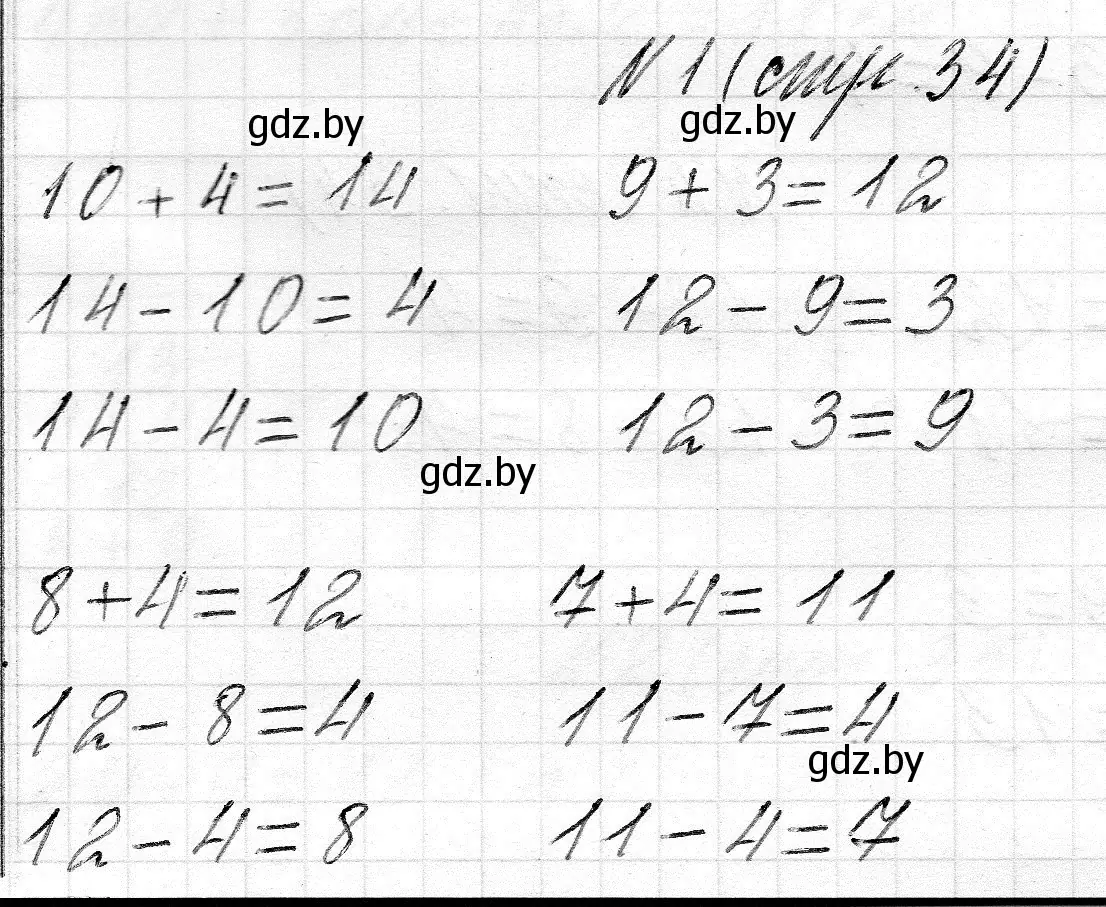 № 1 (стр. 34)
gdz.by gdz.by
10 + 4 = 14 9 + 3 = 12
14 - 10 = 4 12 - 9 = 3
14 - 4 = 10 12 - 3 = 9
gdz.by
8 + 4 = 12 7 + 4 = 11
12 - 8 = 4 11 - 7 = 4
gdz.by
12 - 4 = 8 11 - 4 = 7